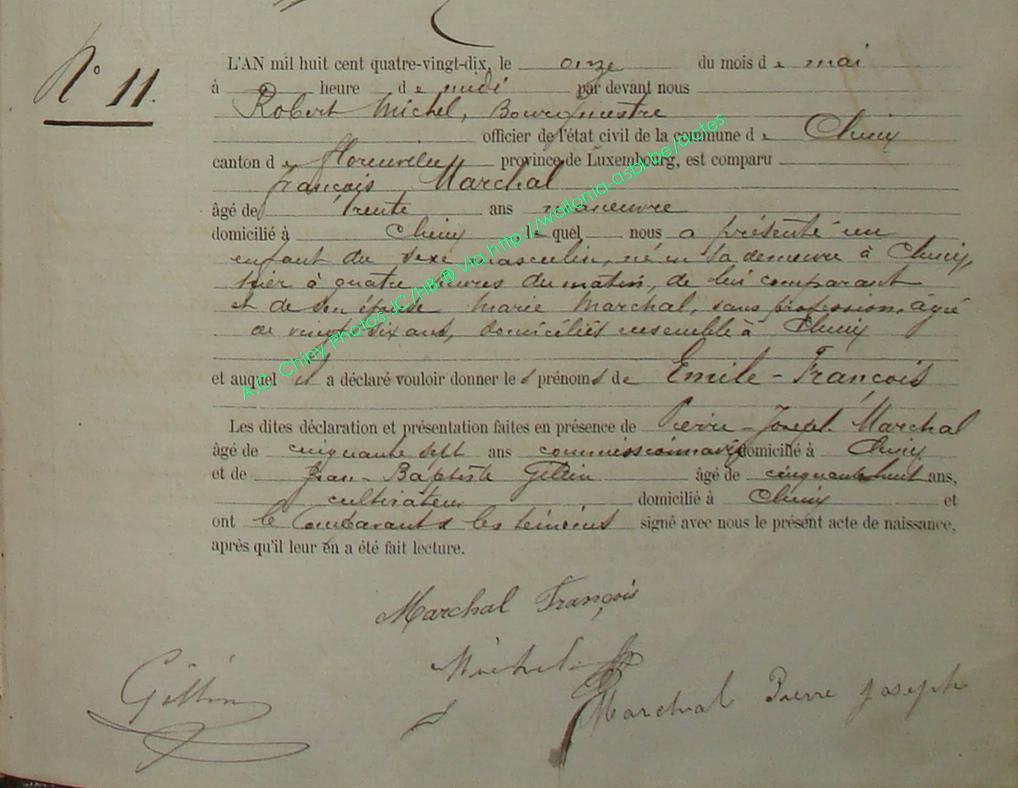 N° 11.
L'AN mil huit cent quatre-vingt-dix, le onze du mois de mai
à heure de midi par devant nous
Robert Michel, Bourgmestre
officier de l'état civil de la commune de Chiny
canton de florenville province de Luxembourg, est comparu
françois Marchal
âgé de trente ans manoeuvre
domicilié à Chiny lequel nous a présenté un
enfant du sexe masculin, né en sa demeure à Chiny,
hier à quatre heures du matin, de lui comparant
et de son épouse Marie Marchal, sans profession, âgée
de vingt-six ans, domiciliés ensemble à Chiny
et auquel il a déclaré vouloir donner les prénoms de Emile-François
Les dites déclaration et présentation faites en présence de Pierre-Joseph Marchal
âgé de cinquante sept ans commissionnaire domicilié à Chiny
et de Jean-Baptiste Gillin âgé de cinquante huit ans,
cultivateur domicilié à Chiny et
ont le Comparant & les témoins signé avec nous le présent acte de naissance,
après qu'il leur en a été fait lecture.
Marchal François
Michel R
Gillin
Marchal Pierre Joseph
A.C. Chiny Photos JC/HB ® Via http://wallonia-asbl.be/actes